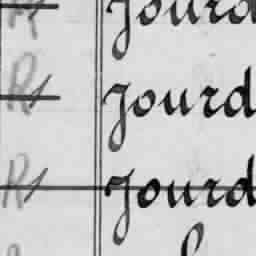 R1 Jourd
R1 Jourd
R1 Jourd